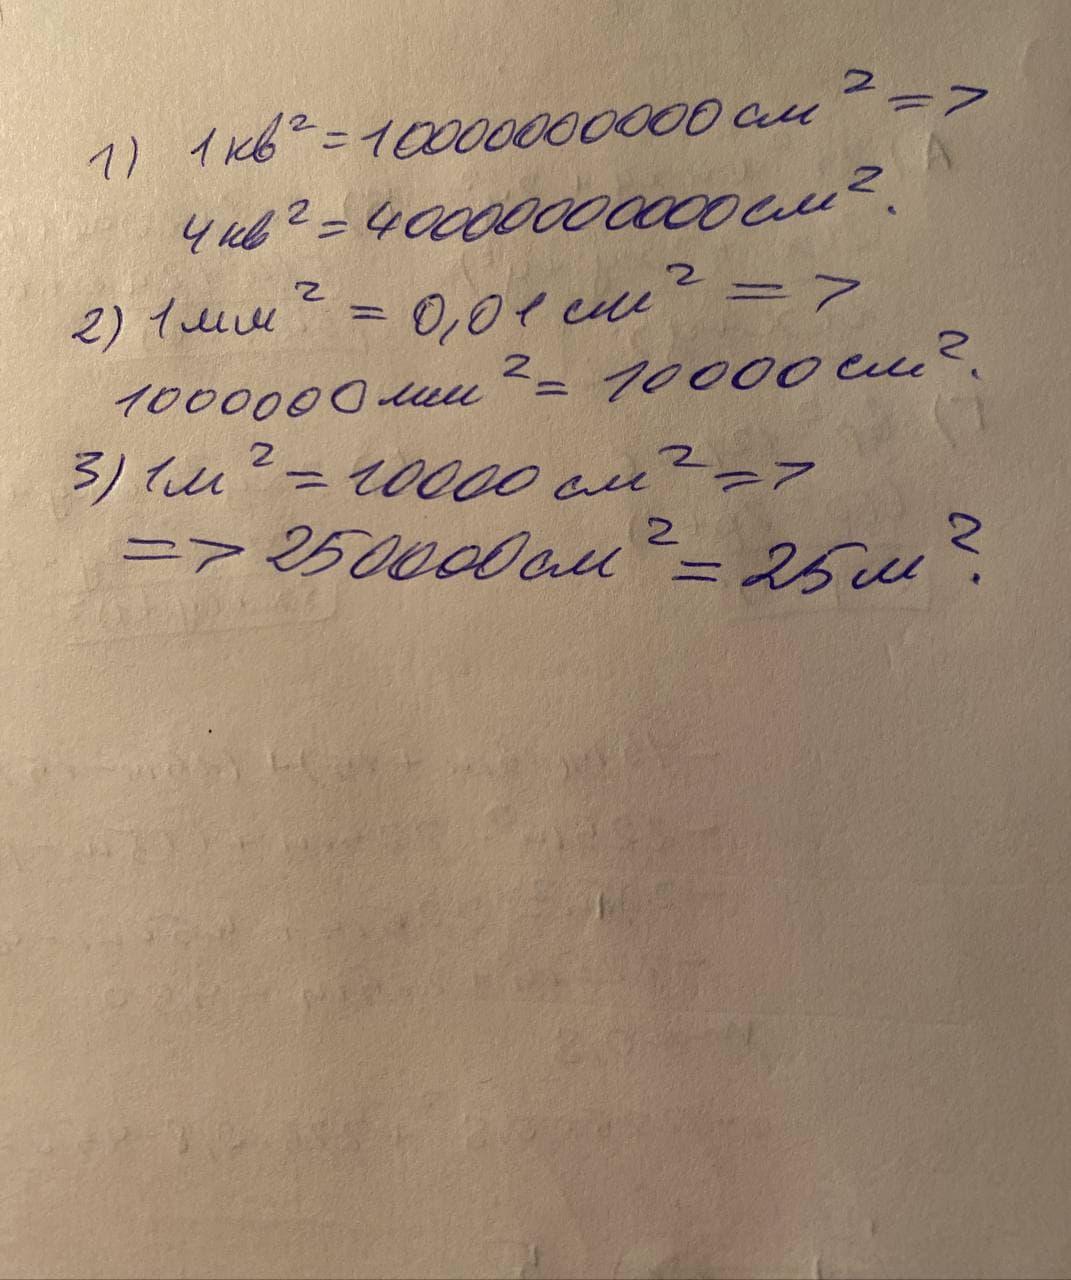 1) 1 кв² = 10000000000 см² =>
4 кв² = 40000000000 см².
2) 1 мм² = 0,01 см² = >
1000000 мм² = 10000 см².
3) 1 м² = 10000 см² =>
=> 250000 см² = 25 м².